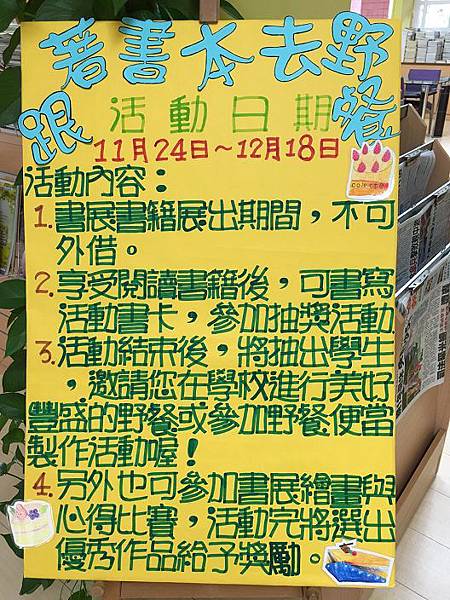 跟著書本去野餐
活動日期
11月24日～12月18日
活動內容：
1.書展書籍展出期間，不可
外借。
2.享受閱讀書籍後，可書寫
活動書卡，參加抽獎活動.
3.活動結束後，將抽出學生
，邀請您在學校進行美好
豐盛的野餐或參加野餐便當
製作活動喔！
4.另外也可參加書展繪畫與
心得比賽，活動完將選出
優秀作品給予獎勵。